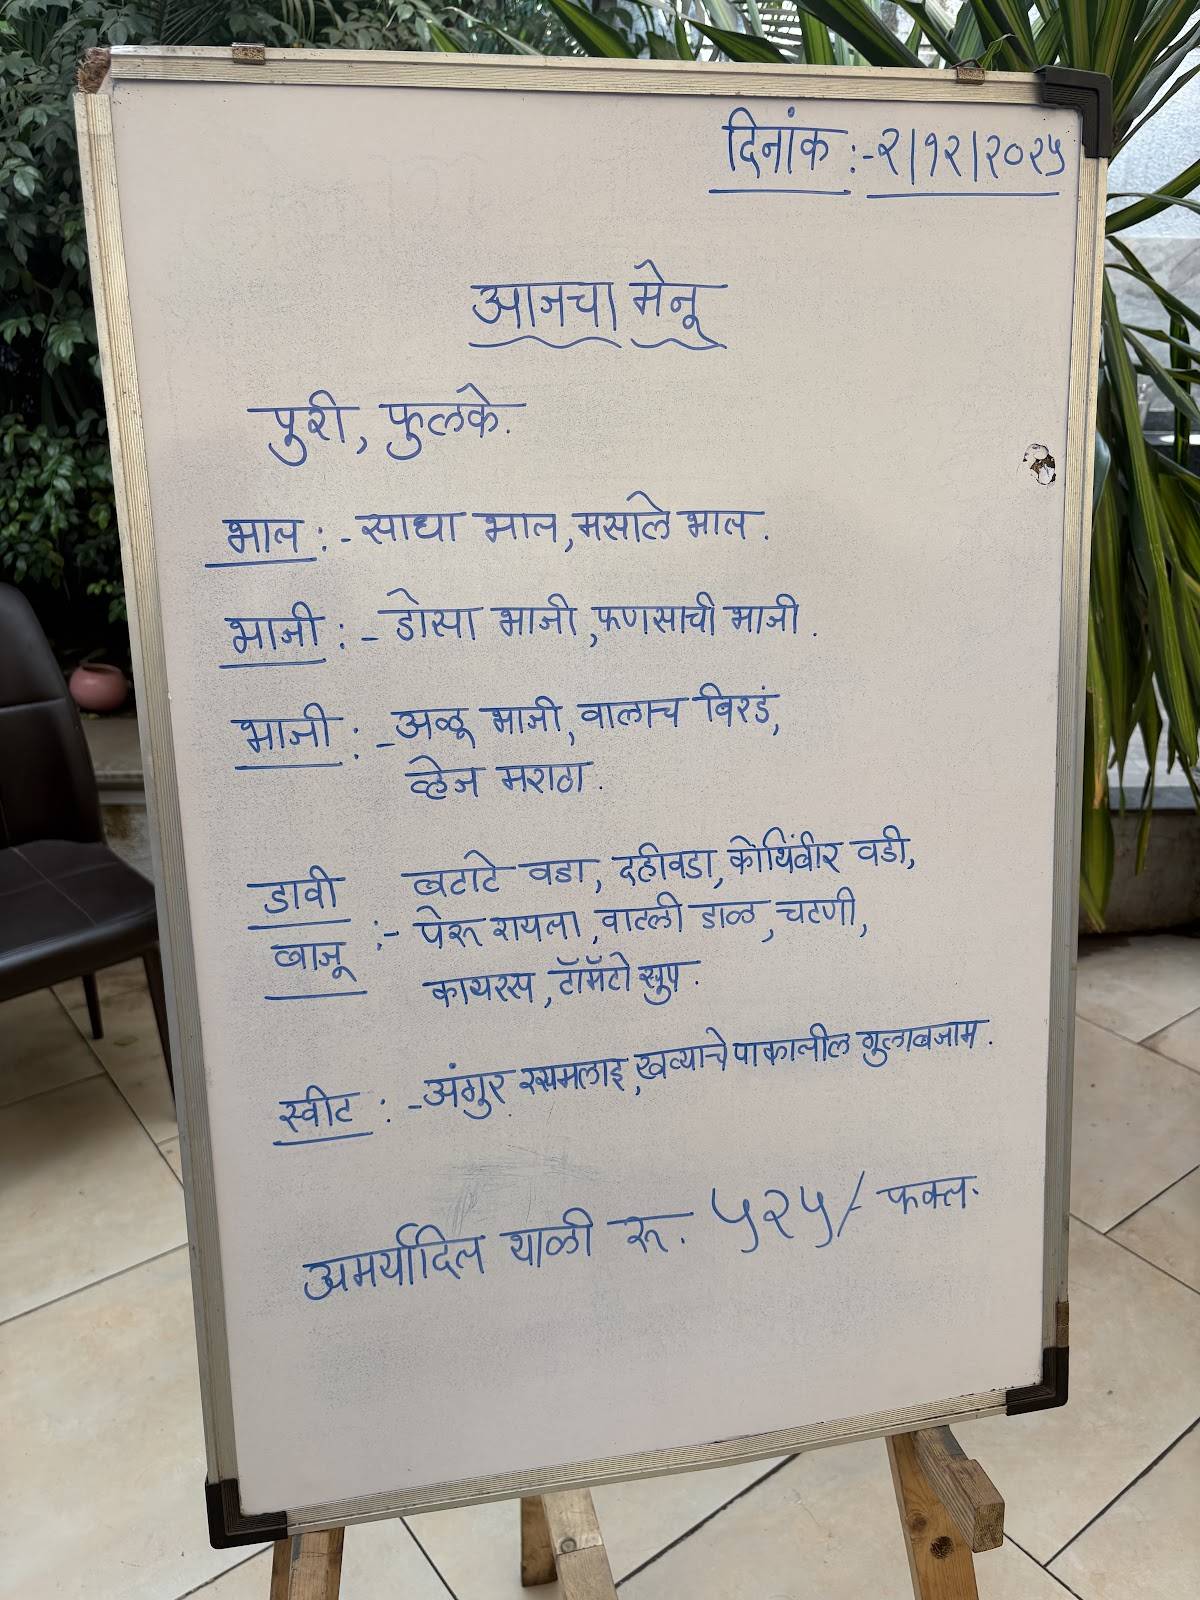 दिनांक :- २/१२/२०२५
आजचा मेनू
पुरी, फुलके.
भात :- साधा भात, मसाले भात.
भाजी :- डोसा भाजी, फणसाची भाजी.
भाजी :- अळू भाजी, वालाच बिरडं,
व्हेज मराठा.
डावी बटाटे वडा, दहीवडा, कोथिंबीर वडी,
बाजू :- पेरू रायता, वाटली डाळ, चटणी,
कायरस, टॉमॅटो सुप.
स्वीट :- अंगुर रसमलाइ, खव्याचे पाकातील गुलाबजाम.
अमर्यादित थाळी रू. ५२५/- फक्त.